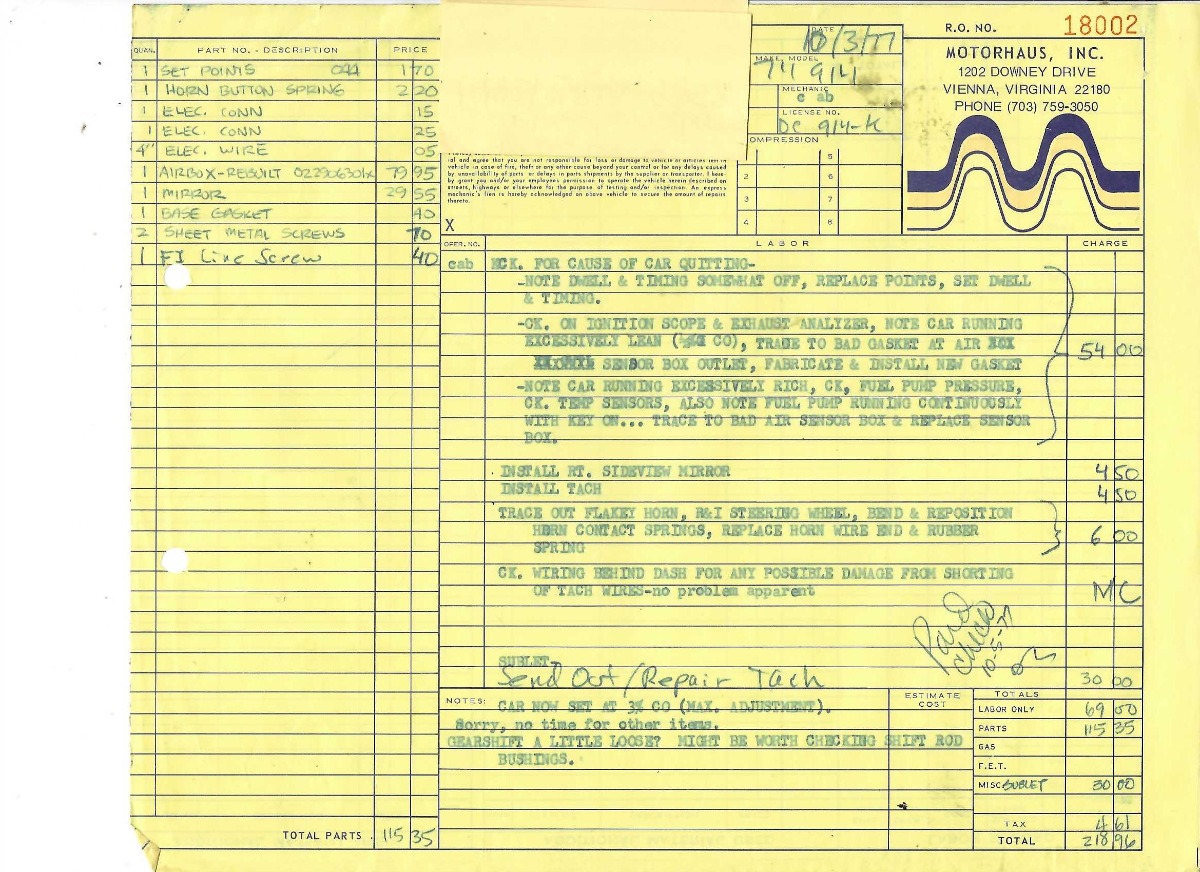 QUAN. PART NO. - DESCRIPTION PRICE
1 SET POINTS 044 1 70
1 HORN BUTTON SPRING 2 20
1 ELEC. CONN 15
1 ELEC. CONN 25
4" ELEC. WIRE 05
1 AIRBOX-REBUILT 79 95
1 MIRROR 29 55
1 BASE GASKET 40
2 SHEET METAL SCREWS 70
1 FI Line Screw 40
TOTAL PARTS 115 35
DATE 10/3/77
MAKE, MODEL
74 914
MECHANIC
c ab
LICENSE NO.
DC 914-K
R.O. NO. 18002
MOTORHAUS, INC.
1202 DOWNEY DRIVE
VIENNA, VIRGINIA 22180
PHONE (703) 759-3050
OMPRESSION
5
2 6
3 7
4 8
al and agree that you are not responsible for loss or damage to vehicle or articles left in
vehicle in case of fire, theft or any other cause beyond your control or for any delays caused
by unavailability of parts or delays in parts shipments by the supplier or transporter. I here-
by grant you and/or your employees permission to operate the vehicle herein described on
streets, highways or elsewhere for the purpose of testing and/or inspection. An express
mechanic's lien is hereby acknowledged on above vehicle to secure the amount of repairs
thereto.
X
OPER. NO. LABOR CHARGE
cab CK. FOR CAUSE OF CAR QUITTING-
-NOTE DWELL & TIMING SOMEWHAT OFF, REPLACE POINTS, SET DWELL
& TIMING.
-CK. ON IGNITION SCOPE & EXHAUST ANALYZER, NOTE CAR RUNNING
EXCESSIVELY LEAN ( CO), TRACE TO BAD GASKET AT AIR 54 00
SENSOR BOX OUTLET, FABRICATE & INSTALL NEW GASKET
-NOTE CAR RUNNING EXCESSIVELY RICH, CK, FUEL PUMP PRESSURE,
CK. TEMP SENSORS, ALSO NOTE FUEL PUMP RUNNING CONTINUOUSLY
WITH KEY ON... TRACE TO BAD AIR SENSOR BOX & REPLACE SENSOR
BOX.
INSTALL RT. SIDEVIEW MIRROR 4 50
INSTALL TACH 4 50
TRACE OUT FLAKEY HORN, R&I STEERING WHEEL, BEND & REPOSITION
HORN CONTACT SPRINGS, REPLACE HORN WIRE END & RUBBER 6 00
SPRING
CK. WIRING BEHIND DASH FOR ANY POSSIBLE DAMAGE FROM SHORTING
OF TACH WIRES-no problem apparent MC
Paid
Check
10-5-77
SUBLET-
Send Out/Repair Tach 30 00
NOTES: CAR NOW SET AT 3% CO (MAX. ADJUSTMENT).
Sorry, no time for other items.
GEARSHIFT A LITTLE LOOSE? MIGHT BE WORTH CHECKING SHIFT ROD
BUSHINGS.
ESTIMATE
COST
TOTALS
LABOR ONLY 69 00
PARTS 115 35
GAS
F.E.T.
MISC SUBLET 30 00
TAX 4 61
TOTAL 218 96